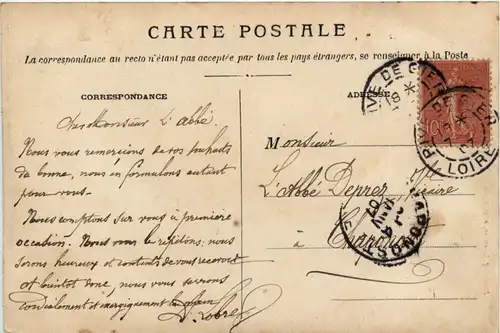 CARTE POSTALE
La correspondance au recto n'étant pas acceptée par tous les pays étrangers, se renseigner à la Poste
CORRESPONDANCE
ADRESSE
Cher Monsieur L'Abbé.
Nous vous remercions de vos souhaits
de bonne, nous en formulons autant
pour vous.
Nous comptons sur vous à première
occasion. Nous vous le répétons, nous
serons heureux et contents de vous recevoir
et bientôt donc, nous vous serrons
cordialement et énergiquement la main
Monsieur
L'Abbé Deprez Vicaire
à
RIVE DE GIER
RIVE DE GIER
LOIRE
10
07